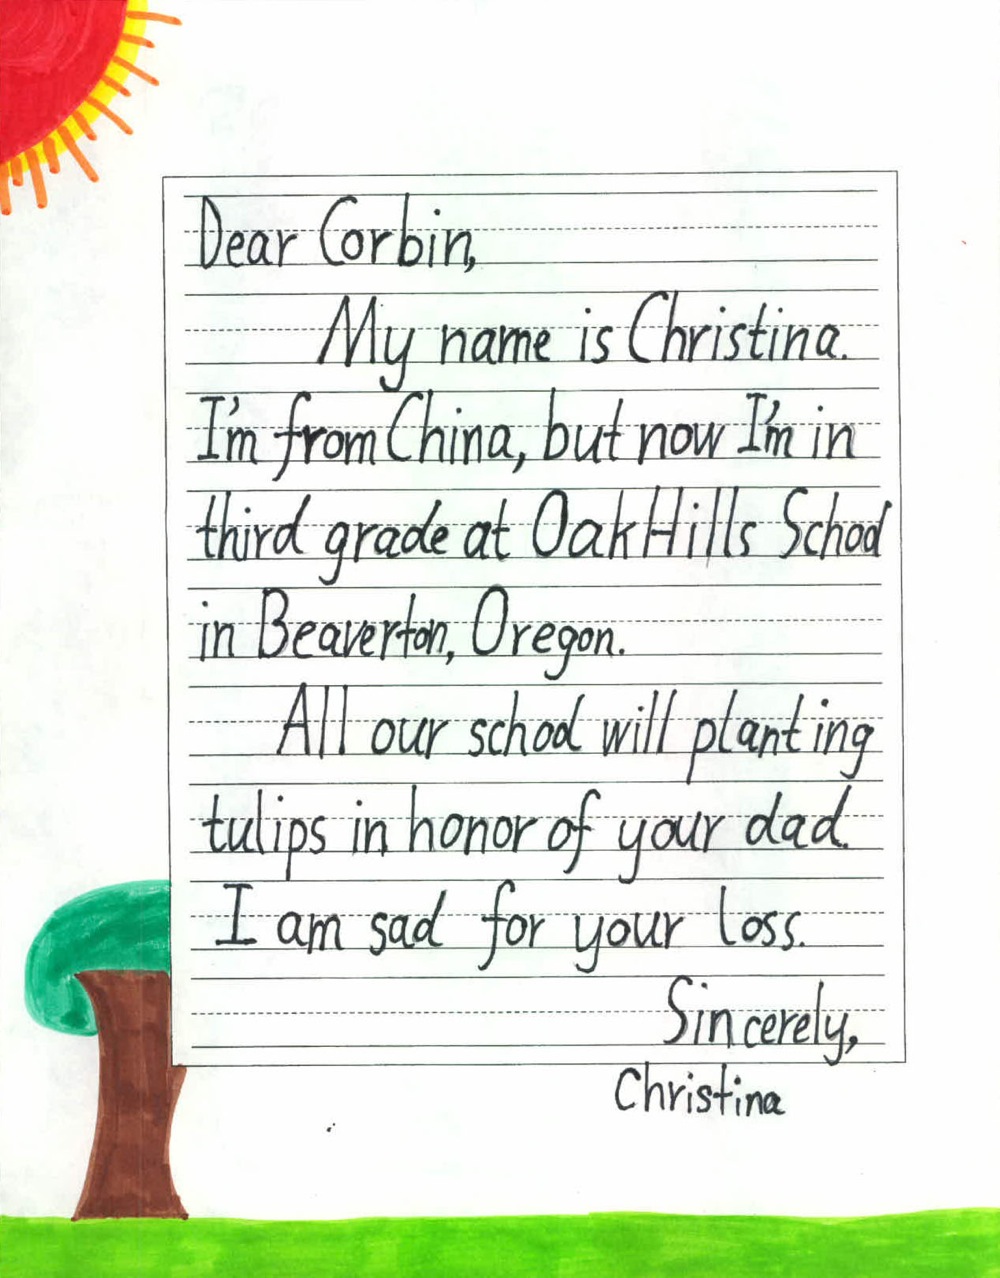 Dear Corbin,
My name is Christina.
I'm from China, but now I'm in
third grade at Oak Hills School
in Beaverton, Oregon.
All our school will planting
tulips in honor of your dad.
I am sad for your loss.
Sincerely,
Christina